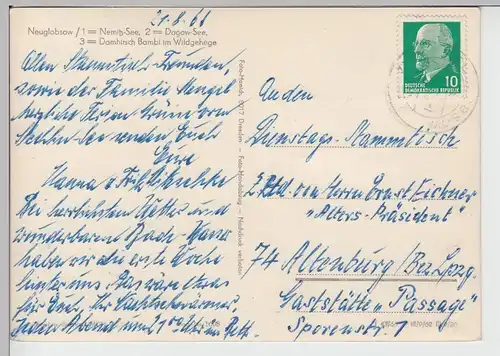 21.8.66
Neuglobsow / 1 = Nemitz-See, 2 = Dagow-See,
3 = Damhirsch Bambi im Wildgehege
Allen Stammtisch-Freunden,
sowie der Familie Mengel
herzliche Feriengrüße vom
senden Euch
Eure
Hanna u. Fritz
Bei herrlichstem Wetter und
wunderbarem Bade-
haben wir die erste Woche
hinter uns. Das wäre etwas
für Euch, Ihr
Jeden Abend um 21°° Uhr im Bett.
Foto-Morich, 8017 Dresden - Foto-Handabzug - Nachdruck verboten
DEUTSCHE
DEMOKRATISCHE REPUBLIK
10
An den
Dienstags-Stammtisch
z. Hd. von Herrn Ernst Eichner
"Alters-Präsident"
74 Altenburg/Bez. Lpzg.
Gaststätte "Passage"
Sporenstr. 1